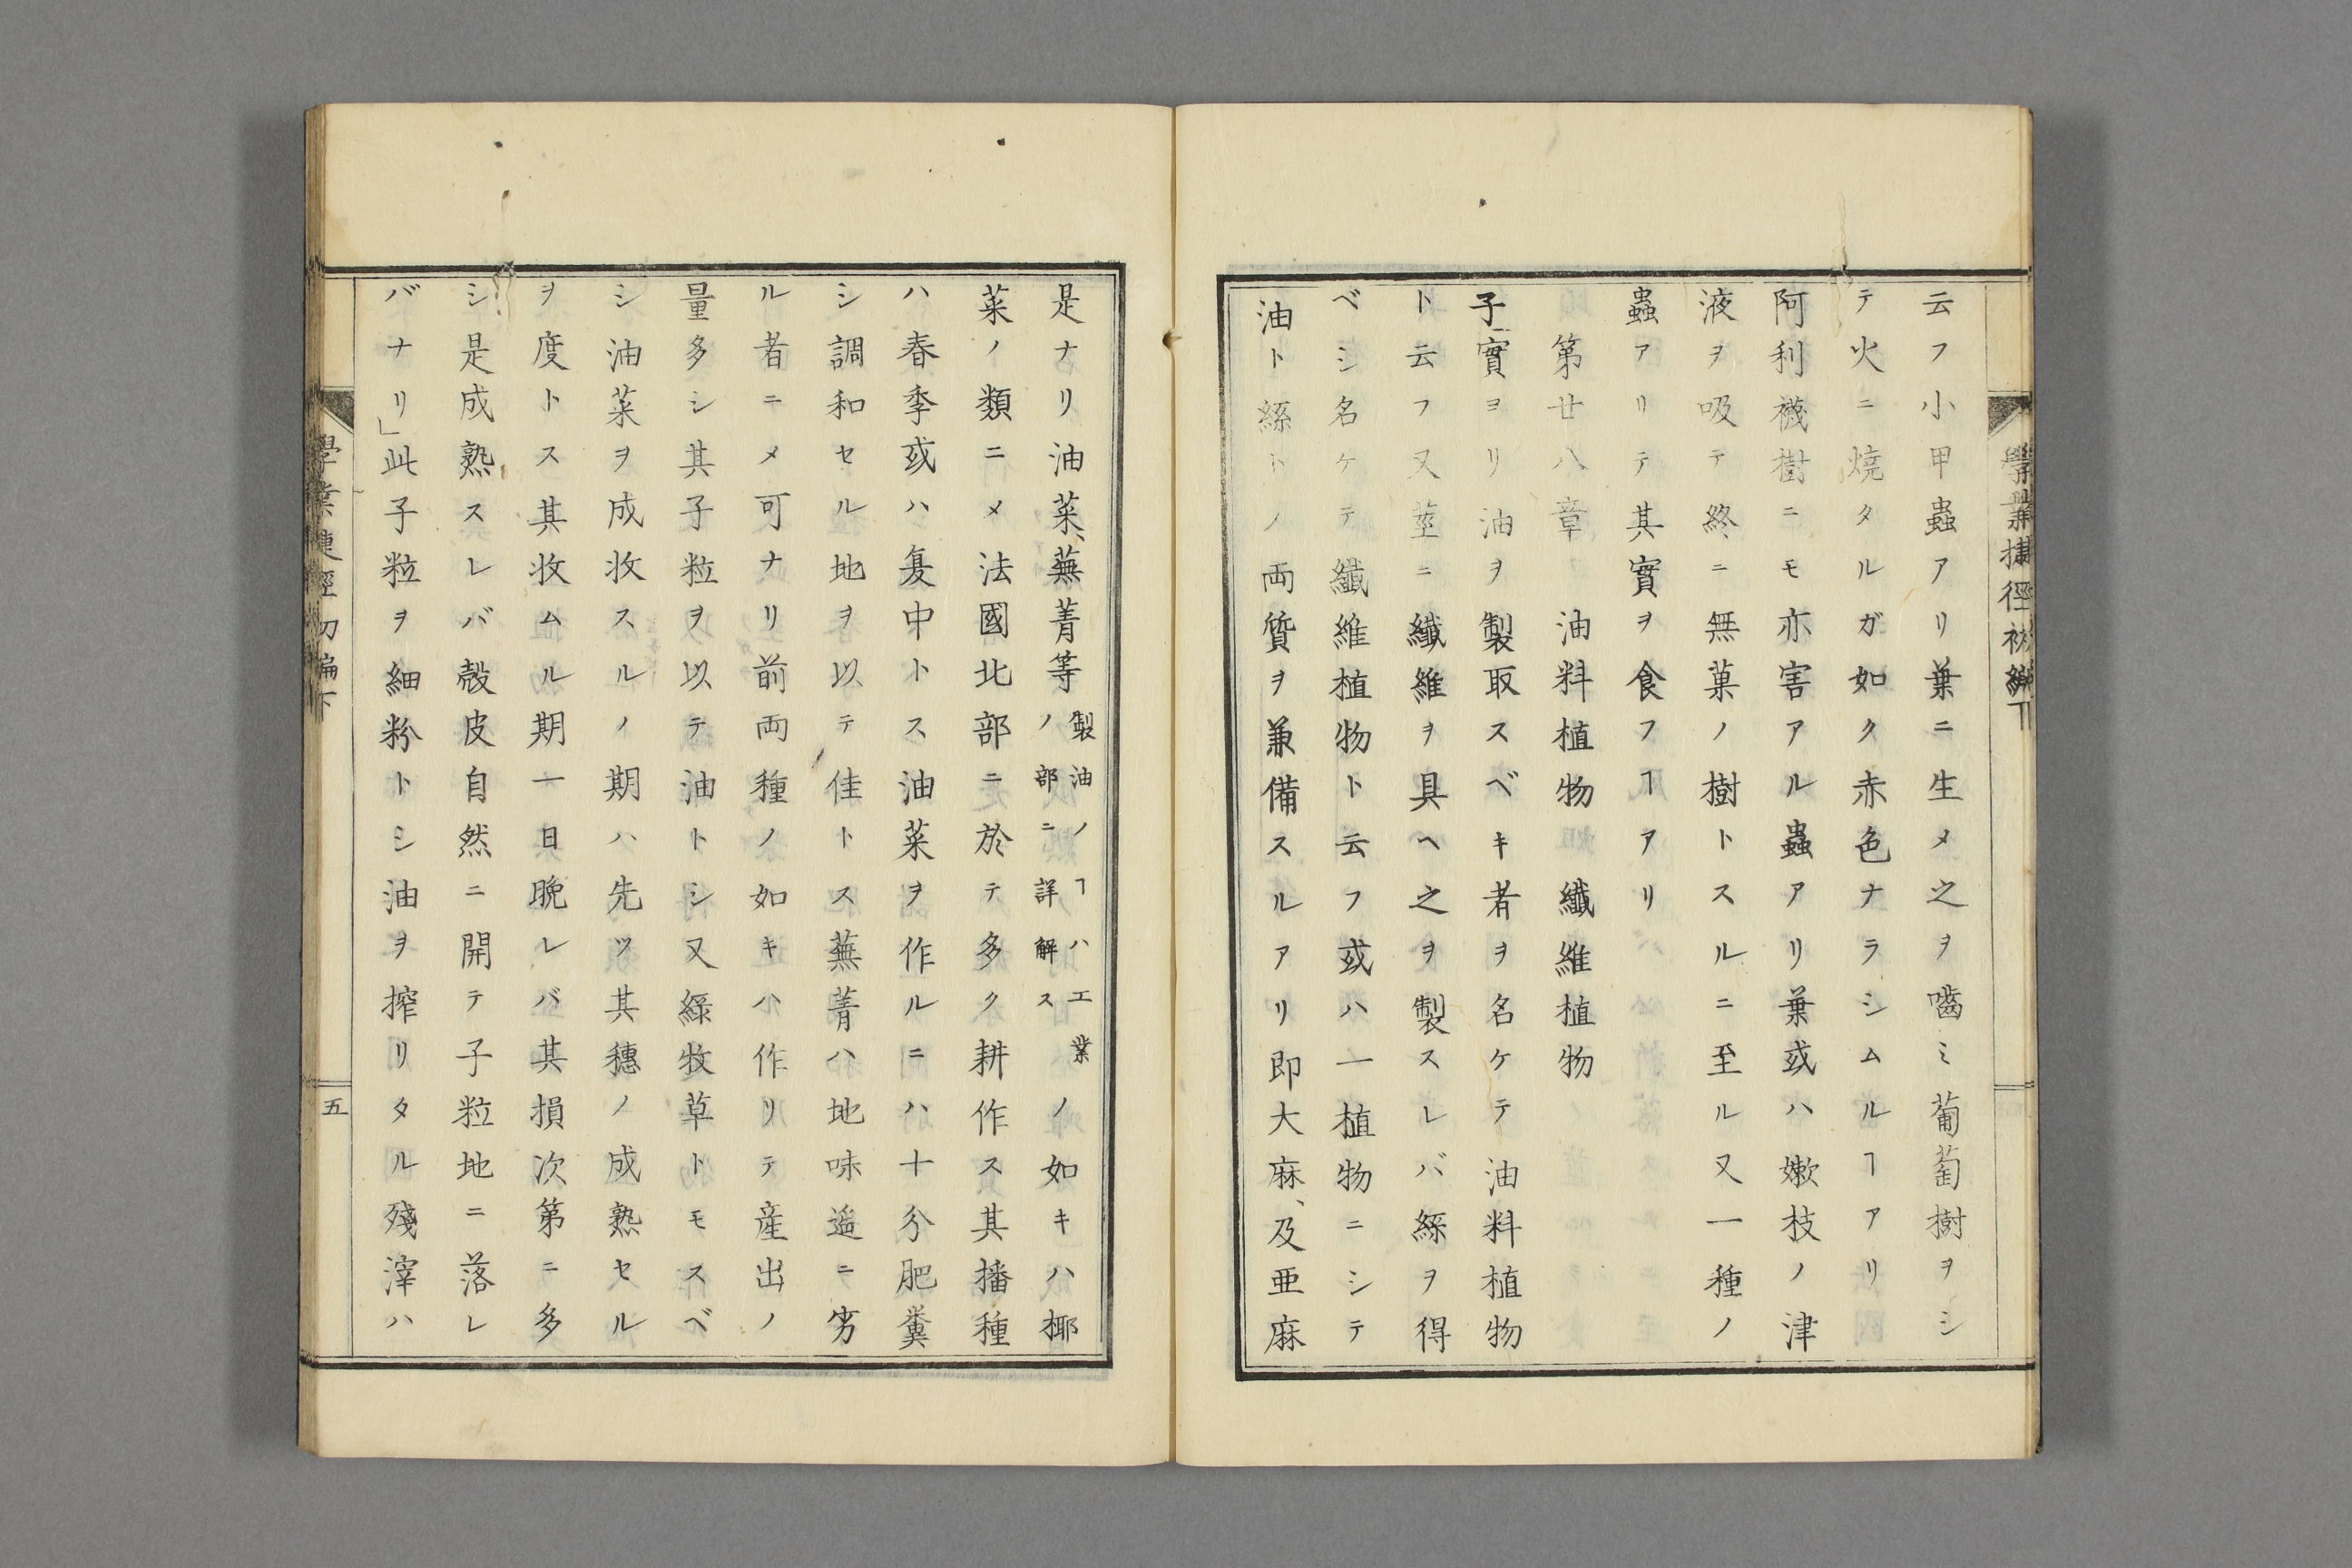 云フ小甲蟲アリ葉ニ生メ之ヲ嚙ミ葡萄樹ヲシ
テ火ニ燒タルガ如ク赤色ナラシムルヿアリ
阿利襪樹ニモ亦害アル蟲アリ葉或ハ嫩枝ノ津
液ヲ吸テ終ニ無菓ノ樹トスルニ至ル又一種ノ
蟲アリテ其實ヲ食フヿアリ
第廿八章 油料植物 纎維植物
子實ヨリ油ヲ製取スベキ者ヲ名ケテ油料植物
ト云フ又莖ニ纎維ヲ具ヘ之ヲ製スレバ綵ヲ得
ベシ名ケテ纎維植物ト云フ或ハ一植物ニシテ
油ト綵トノ両質ヲ兼備スルアリ即大麻、及亜麻
是ナリ油菜、蕪菁等製油ノヿハ工業ノ部ニ詳解スノ如キハ椰
菜ノ類ニメ法國北部ニ於テ多ク耕作ス其播種
ハ春季或ハ夏中トス油菜ヲ作ルニハ十分肥糞
シ調和セル地ヲ以テ佳トス蕪菁ハ地味遥ニ劣
ル者ニメ可ナリ前両種ノ如キハ作リテ産出ノ
量多シ其子粒ヲ以テ油トシ又綠牧草トモスベ
シ油菜ヲ成收スルノ期ハ先ツ其穗ノ成熟セル
ヲ度トス其收ムル期一日晩レバ其損次第ニ多
シ是成熟スレバ殼皮自然ニ開テ子粒地ニ落レ
バナリ」此子粒ヲ細粉トシ油ヲ搾リタル殘滓ハ
五